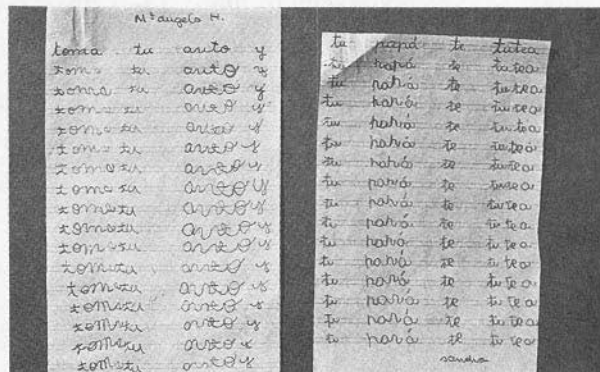 Mª angela H.
toma tu auto y
toma tu auto y
toma tu auto y
toma tu auto y
toma tu auto y
toma tu auto y
toma tu auto y
toma tu auto y
tomatu autoy
tomatu autoy
tomatu autoy
tomatu autoy
tomatu auto y
tomatu auto y
tomatu auto y
tomatu auto y
tomatu auto y
tu papá te tutea
tu papá te tutea
tu papá te tutea
tu papá te tutea
tu papá te tutea
tu papá te tutea
tu papá te tutea
tu papá te tutea
tu papá te tutea
tu papá te tutea
tu papá te tutea
tu papá te tutea
tu papá te tutea
tu papá te tutea
tu papá te tutea
tu papá te tutea
sandra